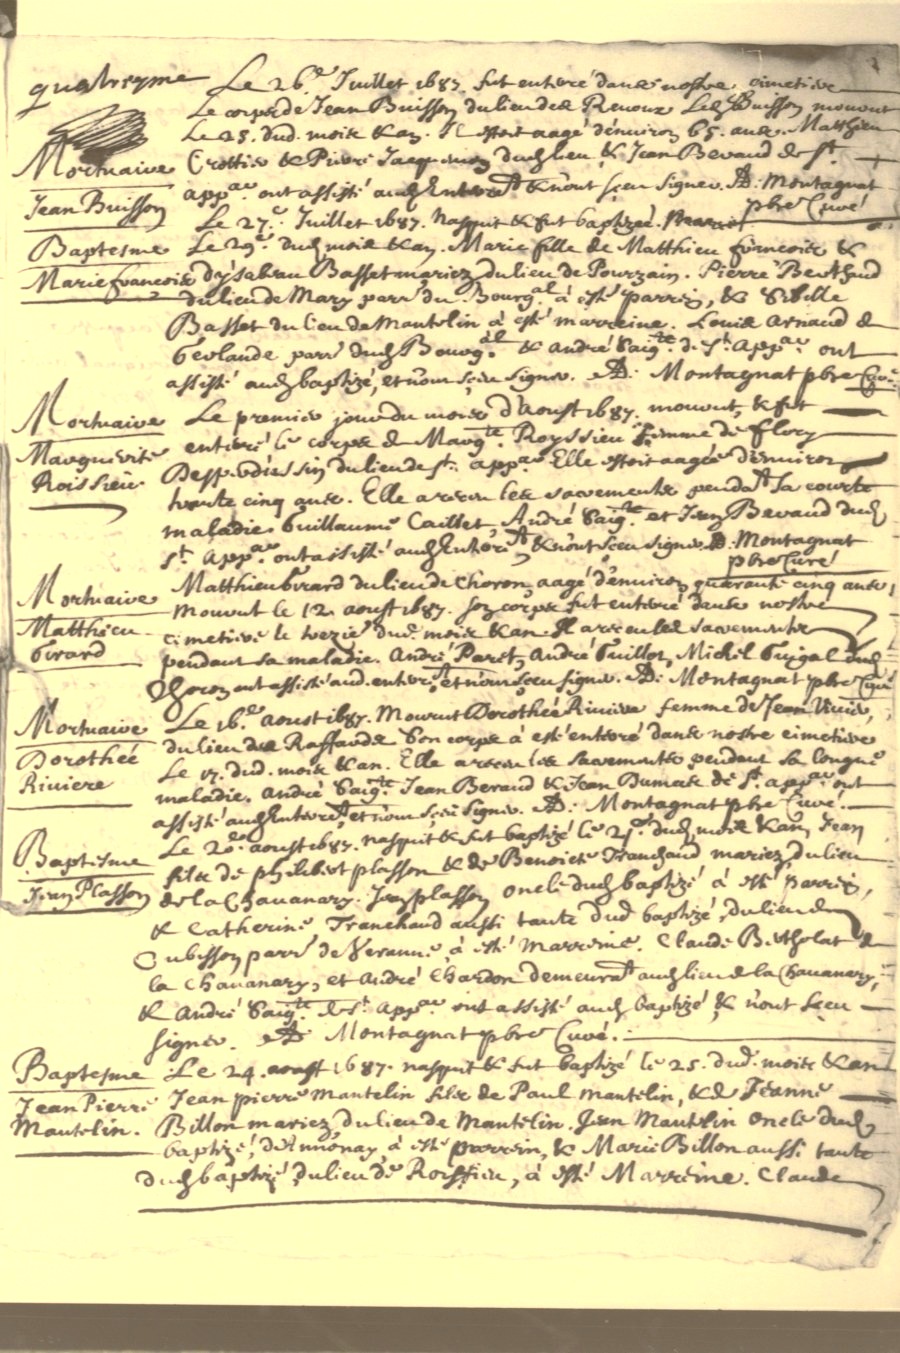 quatreyme
Le 26e Juillet 1687. fut enterré dans nostre cimetiere
Le corps de Jean Buisson du lieu des Renoux Led. Buisson mourut
Le 25. dud. mois & an. Il estoit aagé d'environ 65. ans. Matthieu
Mortuaire
Jean Buisson
Crottier & Pierre Jacquemon dud. lieu & Jean Beraud de St.
appar. ont assisté aud. Enterrt & n'ont sceu signer. A: Montagnat
pbre Curé
Le 27e. Juillet 1687. nasquit & fut baptizée
Baptesme
Marie francois
Le 29e dud. mois & an. Marie fille de Matthieu francois &
d'ysabeau Basset mariez du lieu de Pourzain. Pierre Berthaud
du lieu de Mary parr. du Bourg al à esté parrein, & Sibille
Basset du lieu de Mantelin à esté marreine. Louis Arnaud de
Geolande parr. dud. Bourg. al & André Saigte. de St. Appar. ont
assisté aud. baptizé, et n'ont sceu signer. A: Montagnat pbre Curé
Mortuaire
Marguerite
Roissieu
Le premier jour du mois d'Aoust 1687. mourut, & fut
enterré le corps de Margte Royssieu femme de flory
du lieu de St. appar. Elle estoit aagée d'environ
trante cinq ans. Elle a receu les sacrements pendat sa courte
maladie. Guillaume Caillet, André Saigte. et Jean Beraud dud.
St. Appar. ont assisté aud. Enterrt. & n'ont sceu signer. A. Montagnat
pbre Curé
Mortuaire
Matthieu
Girard
Matthieu Girard du lieu de Choron, aagé d'environ quarante cinq ans,
mourut le 12. aoust 1687. son corps fut enterré dans nostre
cimetiere le trezie. dud. mois & an. Il a receu les sacrements
pendant sa maladie. André Paret, André Guillot, Michel Guigal dud.
Choron ont assisté aud. enterrt. et n'ont sceu signer. A: Montagnat pbre Curé
Mortuaire
Dorothée
Riviere
Le 16e. aoust 1687. Mourut Dorothée Riviere femme de Jean
du lieu des Raffauds Son corps à esté enterré dans nostre cimetiere
Le 17. dud. mois & an. Elle a receu les sacrements pendant sa longue
maladie. André Saigte. Jean Beraud & Jean Dumas de St. appar. ont
assisté aud. Enterrt, et n'ont sceu signer. A: Montagnat pbre Curé.
Baptesme
Jean Plasson
Le 20. aoust 1687. nasquit & fut baptizé le dud. mois & an, Jean
fils de philibert plasson & de Benoiste Tranchand mariez du lieu
de la Chavanary. Jean plasson oncle dud. baptizé à esté parrein,
& Catherine Tranchaud aussi tante dud. baptizé, du lieu de
Cubisson parr. de Veranne, à esté Marreine. Claude Bertholat de
la Chavanary, et André Chardon demeurat aud. lieu de la Chavanary,
& André Saigte. de St. Appar. ont assisté aud. baptizé, & n'ont sceu
signer. A: Montagnat pbre Curé.
Baptesme
Jean Pierre
Mantelin.
Le 24. aoust 1687. nasquit & fut baptizé le 25. dud. mois & an
Jean pierre Mantelin fils de Paul Mantelin, & de Jeanne
Billon mariez du lieu de Mantelin. Jean Mantelin oncle dud.
baptizé, d'Annonay, à esté parrein, & Marie Billon aussi tante
dud. baptizé, du lieu de Roissieu, à esté Marreine. Claude